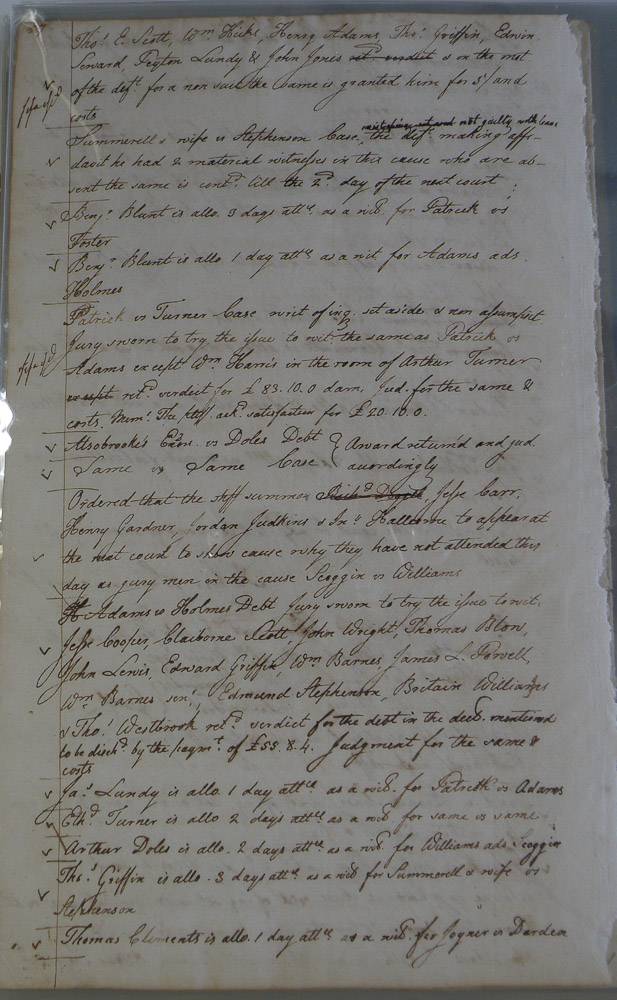 Thos. E. Scott, Wm Hicks, Henry Adams, Thos. Griffin, Edwin
Seward, Peyton Lundy & John Jones retd verdict & on the mot
of the deft. for a non suit the same is granted him for 5/ and
costs
not guilty with leave
Summerell & wife vs Stephenson Case, the deft. making affi-
davit he had 2 material witnesses in this cause who are ab-
sent the same is contd. till the 2d. day of the next court
Benjn. Blunt is allo. 3 days attce. as a wit. for Patrick vs
Foster
Benjn. Blunt is allo 1 day attce. as a wit for Adams ads.
Holmes
Patrick vs Turner Case writ of inq. set aside & non assumpsit
Jury sworn to try the issue to wit. the same as Patrick vs
Adams except Wm Harris in the room of Arthur Turner
except retd. verdict for £83.10.0 dam. Jud. for the same &
costs. Mem. The pltff. ack. satisfaction for £20.10.0.
Alsobrooke's Exors. vs Doles Debt } Award return'd and jud
Same vs Same Case } accordingly
Ordered that the shff summon Jesse Carr,
Henry Gardner, Jordan Judkins & Jno. Hallcome to appear at
the next court to show cause why they have not attended this
day as jury men in the cause Scoggin vs Williams
Adams vs Holmes Debt Jury sworn to try the issue to wit.
Jesse Cooper, Claiborne Scott, John Wright, Thomas Blow,
John Lewis, Edward Griffin, Wm Barnes, James L. Powell,
Wm. Barnes senr., Edmund Stephenson, Britain Williams
& Thos. Westbrook retd. verdict for the debt in the decl. mentioned
to be dischd. by the paymt. of £55.8.4. Judgment for the same &
costs
Jas. Lundy is allo. 1 day attce as a wit. for Patrick vs Adams
Ethd. Turner is allo 2 days attce as a wit. for same vs same
Arthur Doles is allo. 2 days attce. as a wit. for Williams ads Scoggin
Thos. Griffin is allo. 3 days attce. as a wit for Summerell & wife vs
Stephenson
Thomas Clements is allo. 1 day attce. as a wit. for Joyner vs Darden